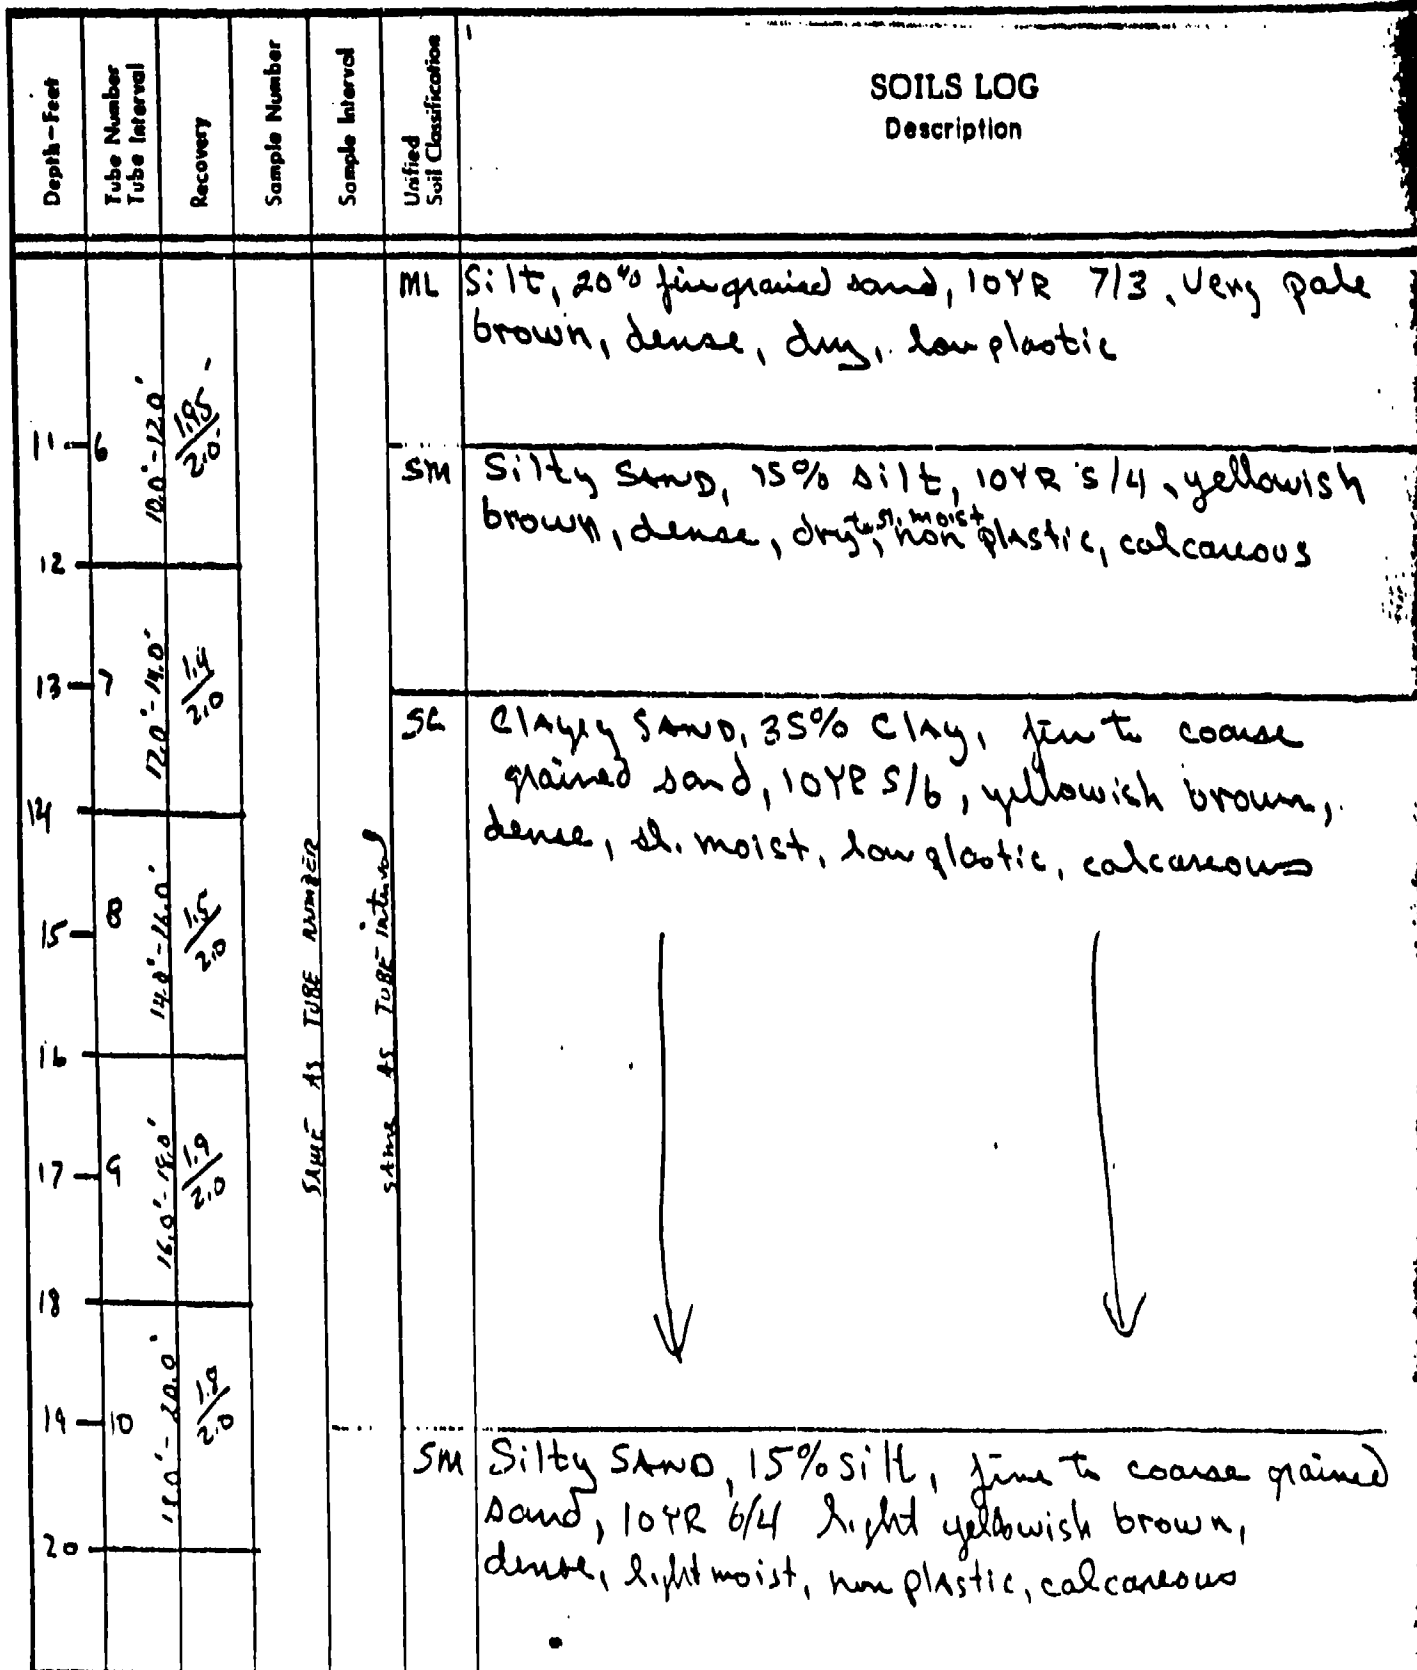 SOILS LOG
Description
Depth-Feet
Tube Number
Tube Interval
Recovery
Sample Number
Sample Interval
Unified
Soil Classification
ML Silt, 20% fine grained sand, 10YR 7/3, very pale
brown, dense, dry, low plastic
11 6 10.0'-12.0' 1.95'/2.0'
SM Silty SAND, 15% silt, 10YR 5/4, yellowish
brown, dense, dry to sl. moist, non plastic, calcareous
12
13 7 12.0'-14.0' 1.4/2.0
SC Clayey SAND, 35% Clay, fine to coarse
grained sand, 10YR 5/6, yellowish brown,
dense, sl. moist, low plastic, calcareous
14
15 8 14.0'-16.0' 1.5/2.0
SAME AS TUBE NUMBER
SAME AS TUBE interval
16
17 9 16.0'-18.0' 1.9/2.0
18
19 10 18.0'-20.0' 1.8/2.0
SM Silty SAND, 15% silt, fine to coarse grained
sand, 10YR 6/4 light yellowish brown,
dense, light moist, non plastic, calcareous
20